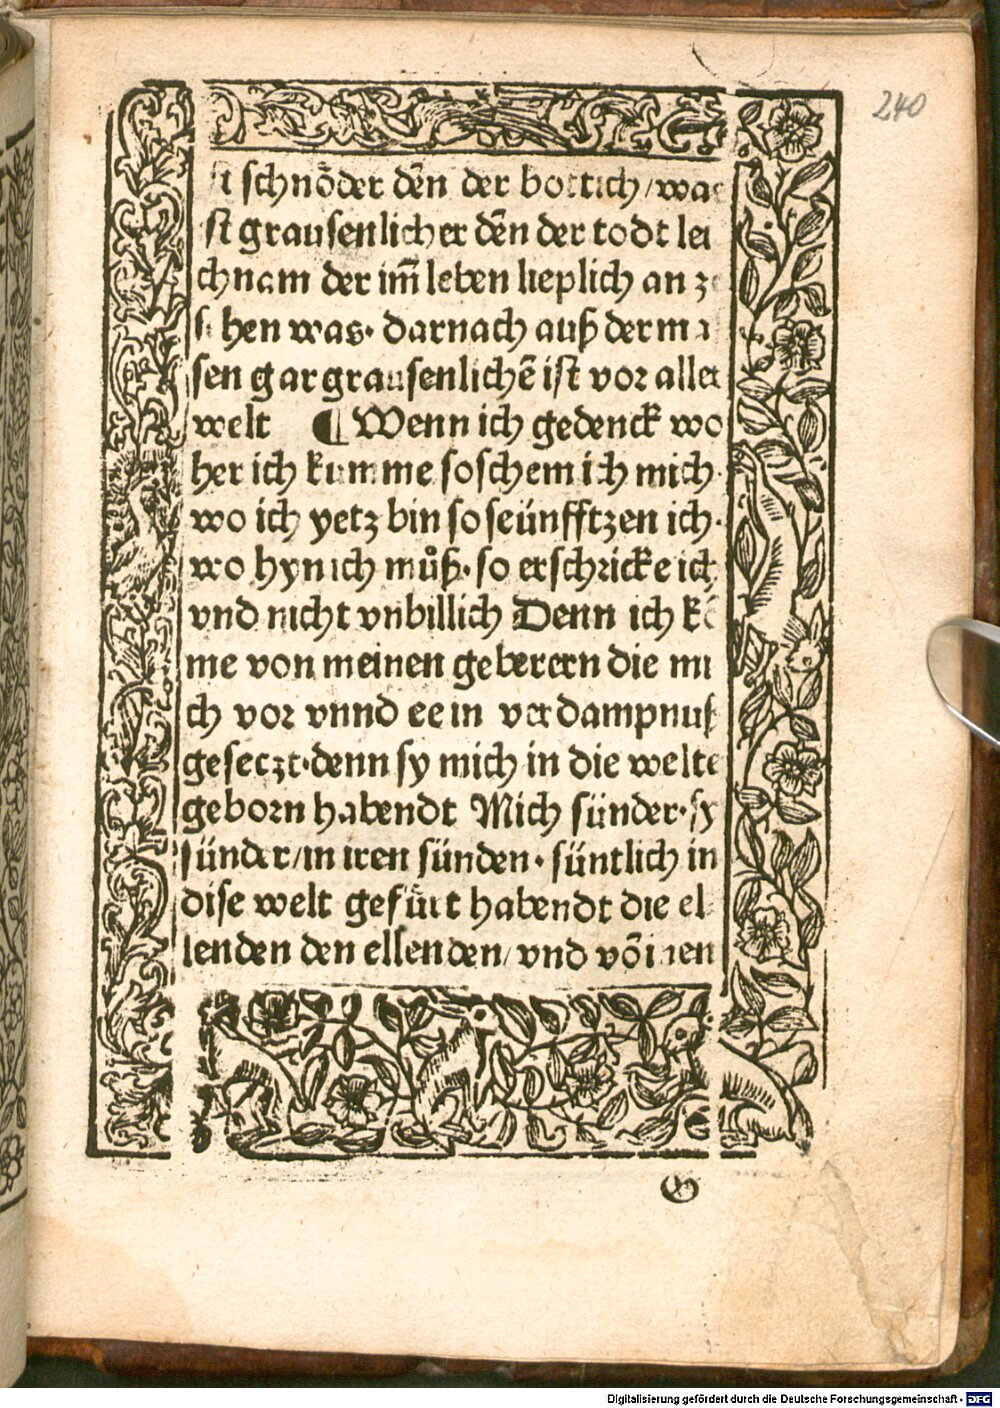 240
schnöder deñ der bottich/was
st grausenlicher deñ der todt lei
chnam der im̃ leben lieplich an ze
sehen was· darnach auß der ma
sen gar grausenlichẽ ist vor aller
welt ¶ Wenn ich gedenck wo
her ich kumme so schem ich mich·
wo ich yetz bin so seünfftzen ich·
wo hyn ich můß· so erschricke ich
vnd nicht vnbillich Denn ich kõ
me von meinen geberern die mi
ch vor vnnd ee in verdampnuß
geseczt·denn sy mich in die welte
geborn habendt Mich sünder·sy
sünder/in iren sünden·süntlich in
dise welt gefürt habendt die el
lenden den ellenden/vnd võ iren
G
Digitalisierung gefördert durch die Deutsche Forschungsgemeinschaft - DFG